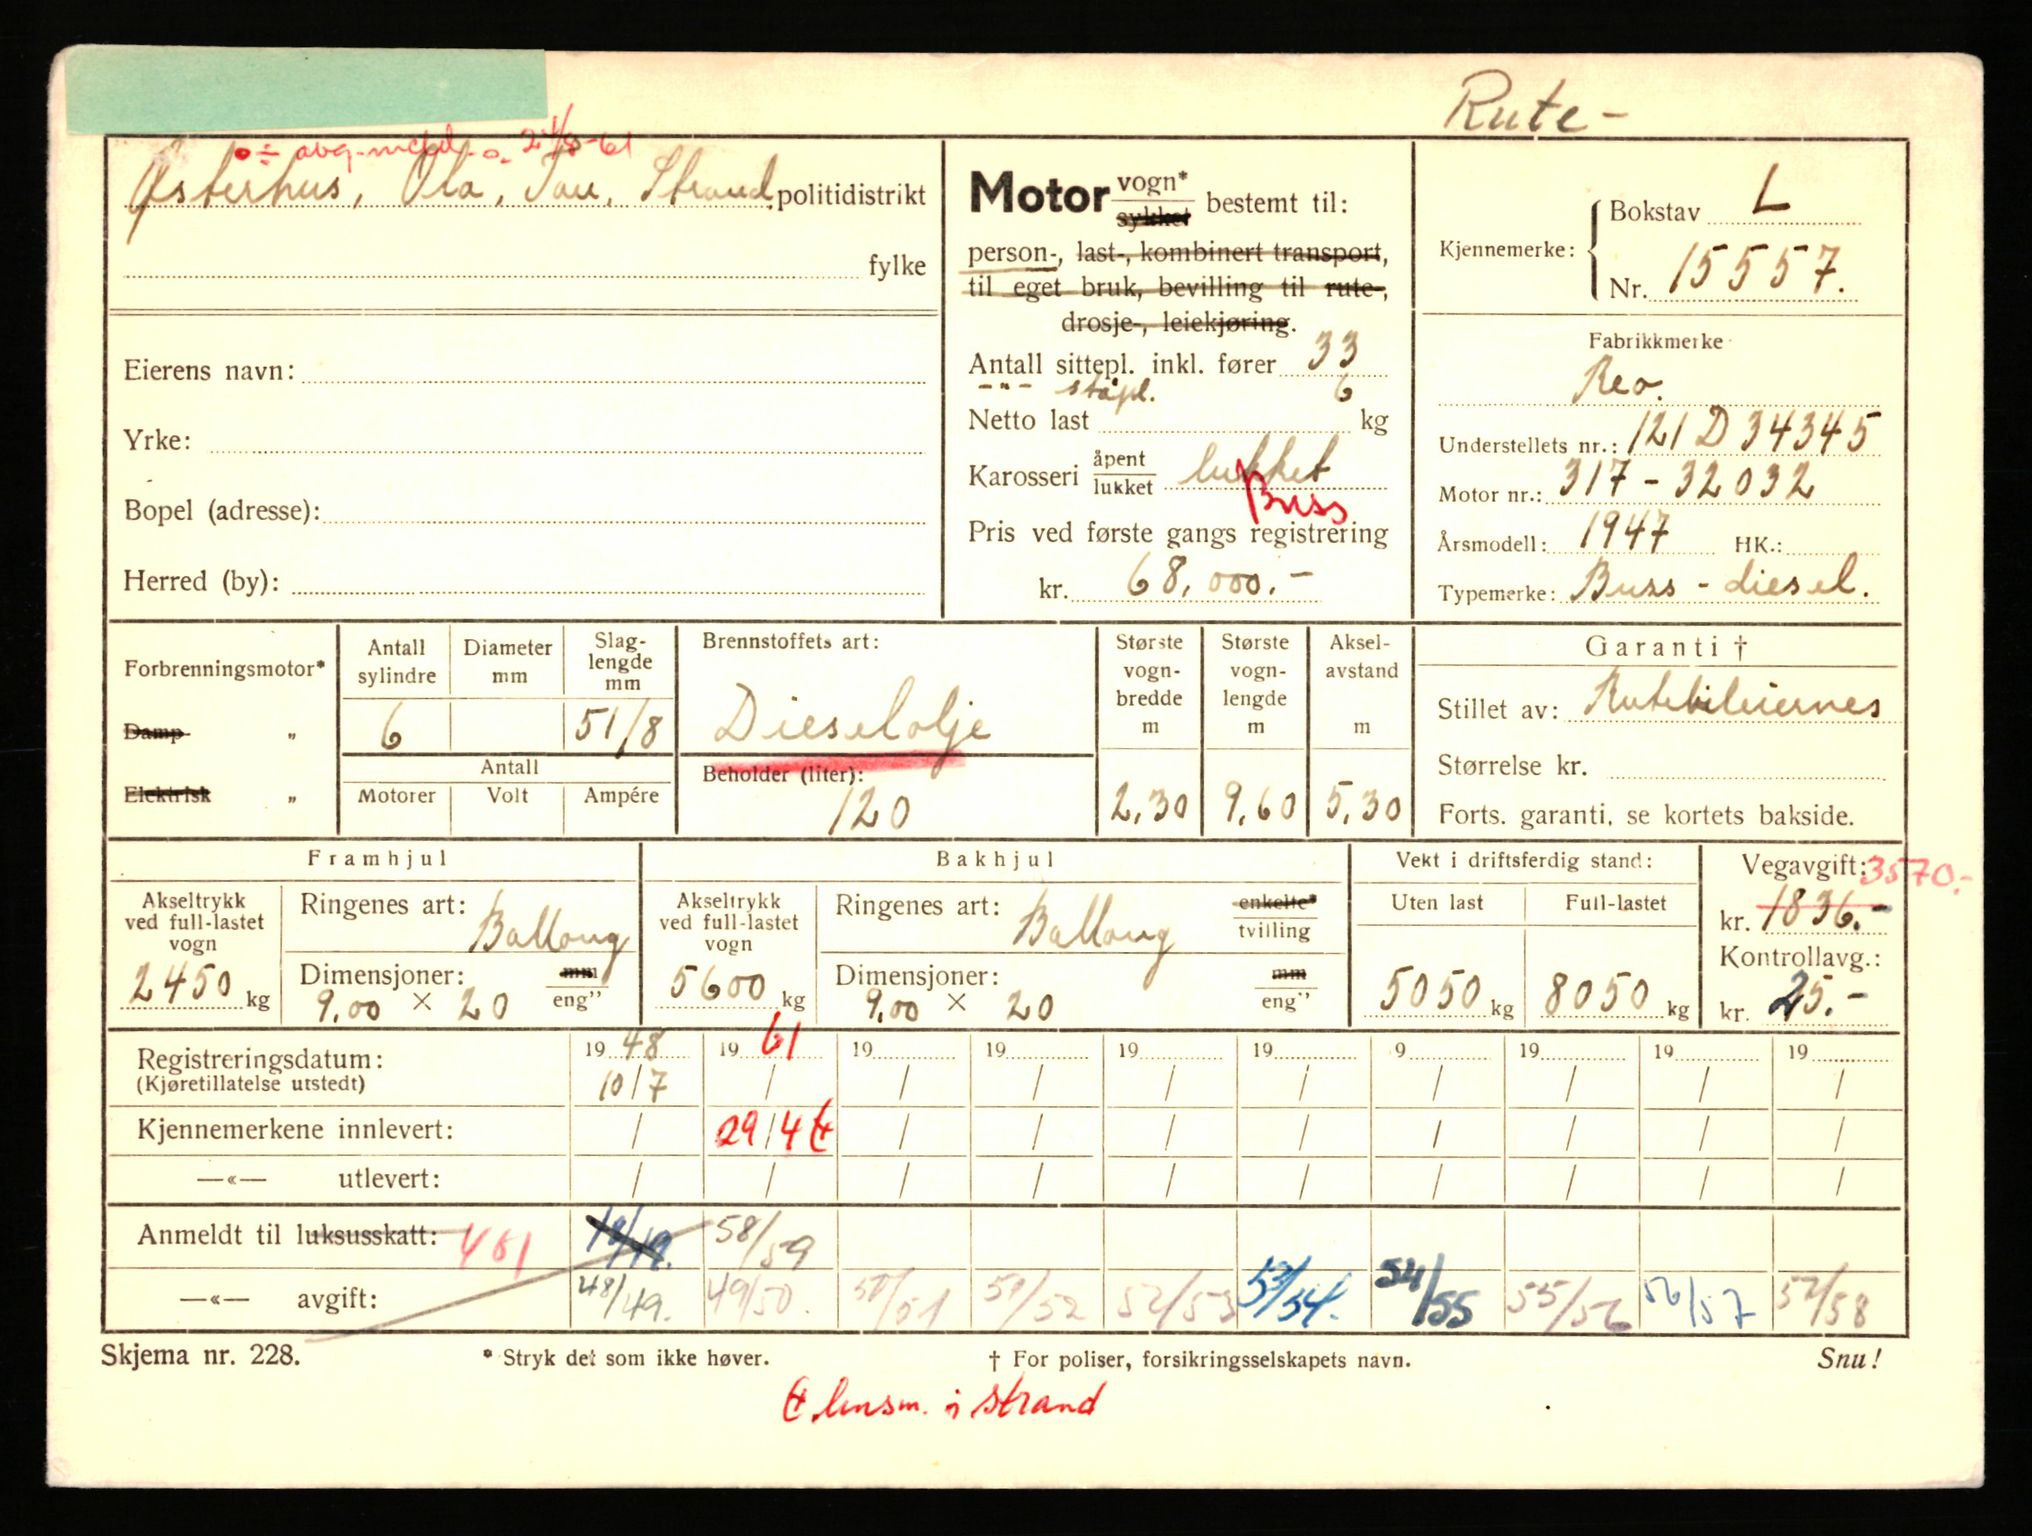 Rute-
÷ avg. meld. 24/8-61
Østerhus, Ola, Tau, Strand politidistrikt
fylke
Eierens navn:
Yrke:
Bopel (adresse):
Herred (by):
Motor vogn* sykkel bestemt til:
person-, last-, kombinert transport,
til eget bruk, bevilling til rute-,
drosje-, leiekjøring.
Antall sittepl. inkl. fører 33
-"- ståpl. 6
Netto last kg
Karosseri åpent lukket lukket
Buss
Pris ved første gangs registrering
kr. 68.000.-
Kjennemerke: Bokstav L
Nr. 15557.
Fabrikkmerke
Reo.
Understellets nr.: 121 D 34345
Motor nr.: 317-32032
Årsmodell: 1947 HK.:
Typemerke: Buss-diesel.
Forbrenningsmotor*
Damp "
Elektrisk "
Antall sylindre 6
Diameter mm
Slaglengde mm 51/8
Antall
Motorer Volt Ampére
Brennstoffets art:
Dieselolje
Beholder (liter):
120
Største vognbredde m 2,30
Største vognlengde m 9,60
Akselavstand m 5,30
Garanti †
Stillet av: Rutebileiernes
Størrelse kr.
Forts. garanti, se kortets bakside.
Framhjul
Akseltrykk ved full-lastet vogn
2450 kg
Ringenes art: Ballong
Dimensjoner: mm eng"
9.00 × 20
Bakhjul
Akseltrykk ved full-lastet vogn
5600 kg
Ringenes art: Ballong enkelte* tvilling
Dimensjoner: mm eng"
9.00 × 20
Vekt i driftsferdig stand:
Uten last Full-lastet
5050 kg 8050 kg
Vegavgift: 3570.-
kr. 1836.-
Kontrollavg.:
kr. 25.-
Registreringsdatum: 1948 1961 19 19 19 19 9 19 19 19
(Kjøretillatelse utstedt) 10/7 / / / / / / / / /
Kjennemerkene innlevert: / 29/4 / / / / / / / /
—«— utlevert: / / / / / / / / / /
Anmeldt til luksusskatt: 461 58/59
—«— avgift: 48/49. 49/50. 50/51 51/52 52/53 53/54. 54/55 55/56 56/57 57/58
Skjema nr. 228. * Stryk det som ikke høver. † For poliser, forsikringsselskapets navn. Snu!
lensm. i Strand